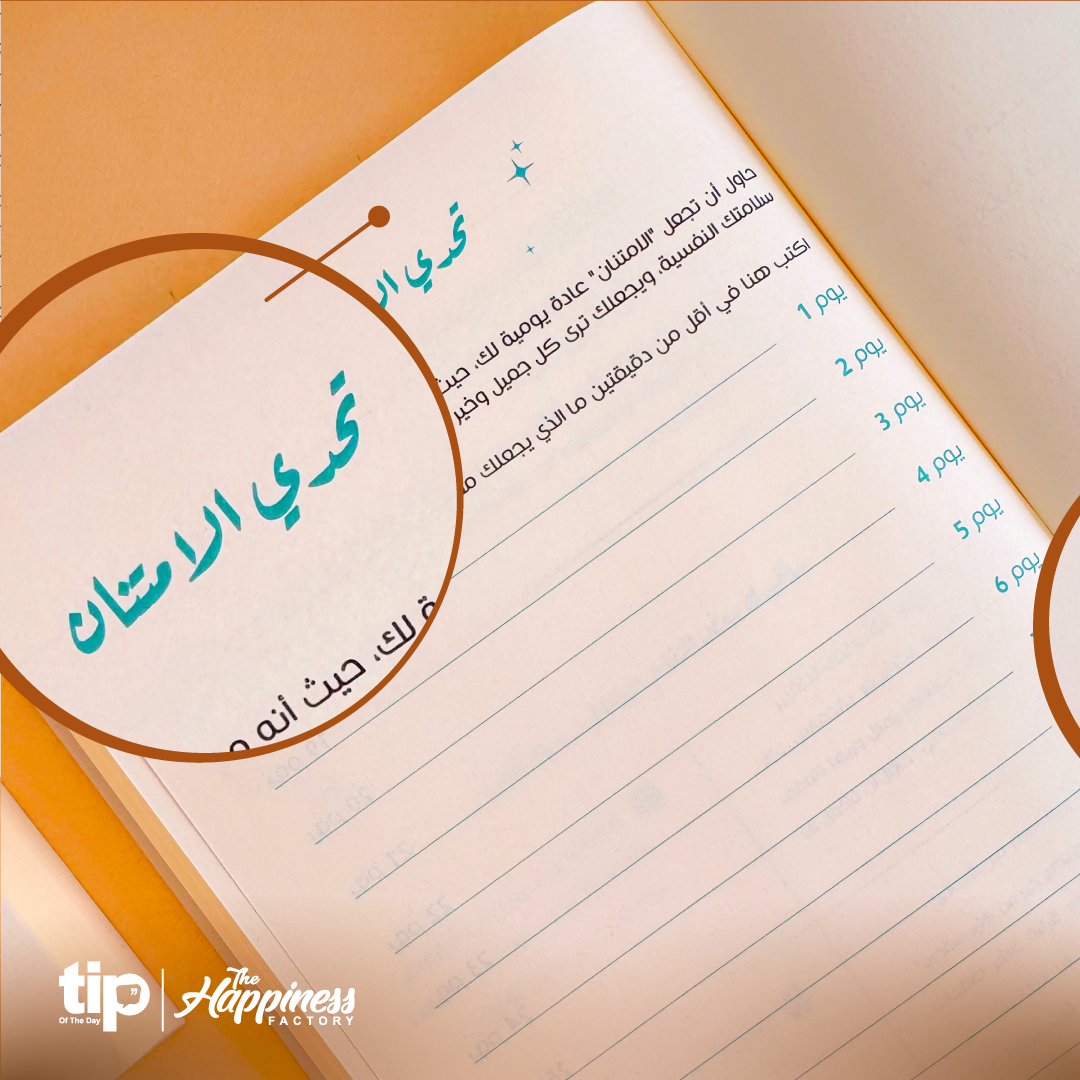 تحدي الا
حاول أن تجعل "الامتنان" عادة يومية لك، حيث
سلامتك النفسية، ويجعلك ترى كل جميل وخير
اكتب هنا في أقل من دقيقتين ما الذي يجعلك
يوم 1
يوم 2
يوم 3
يوم 4
يوم 5
يوم 6
تحدي الامتنان
ة لك، حيث أنه م
يوم 20
يوم 21
يوم 22
يوم 23
tip
Of The Day
The
Happiness
FACTORY